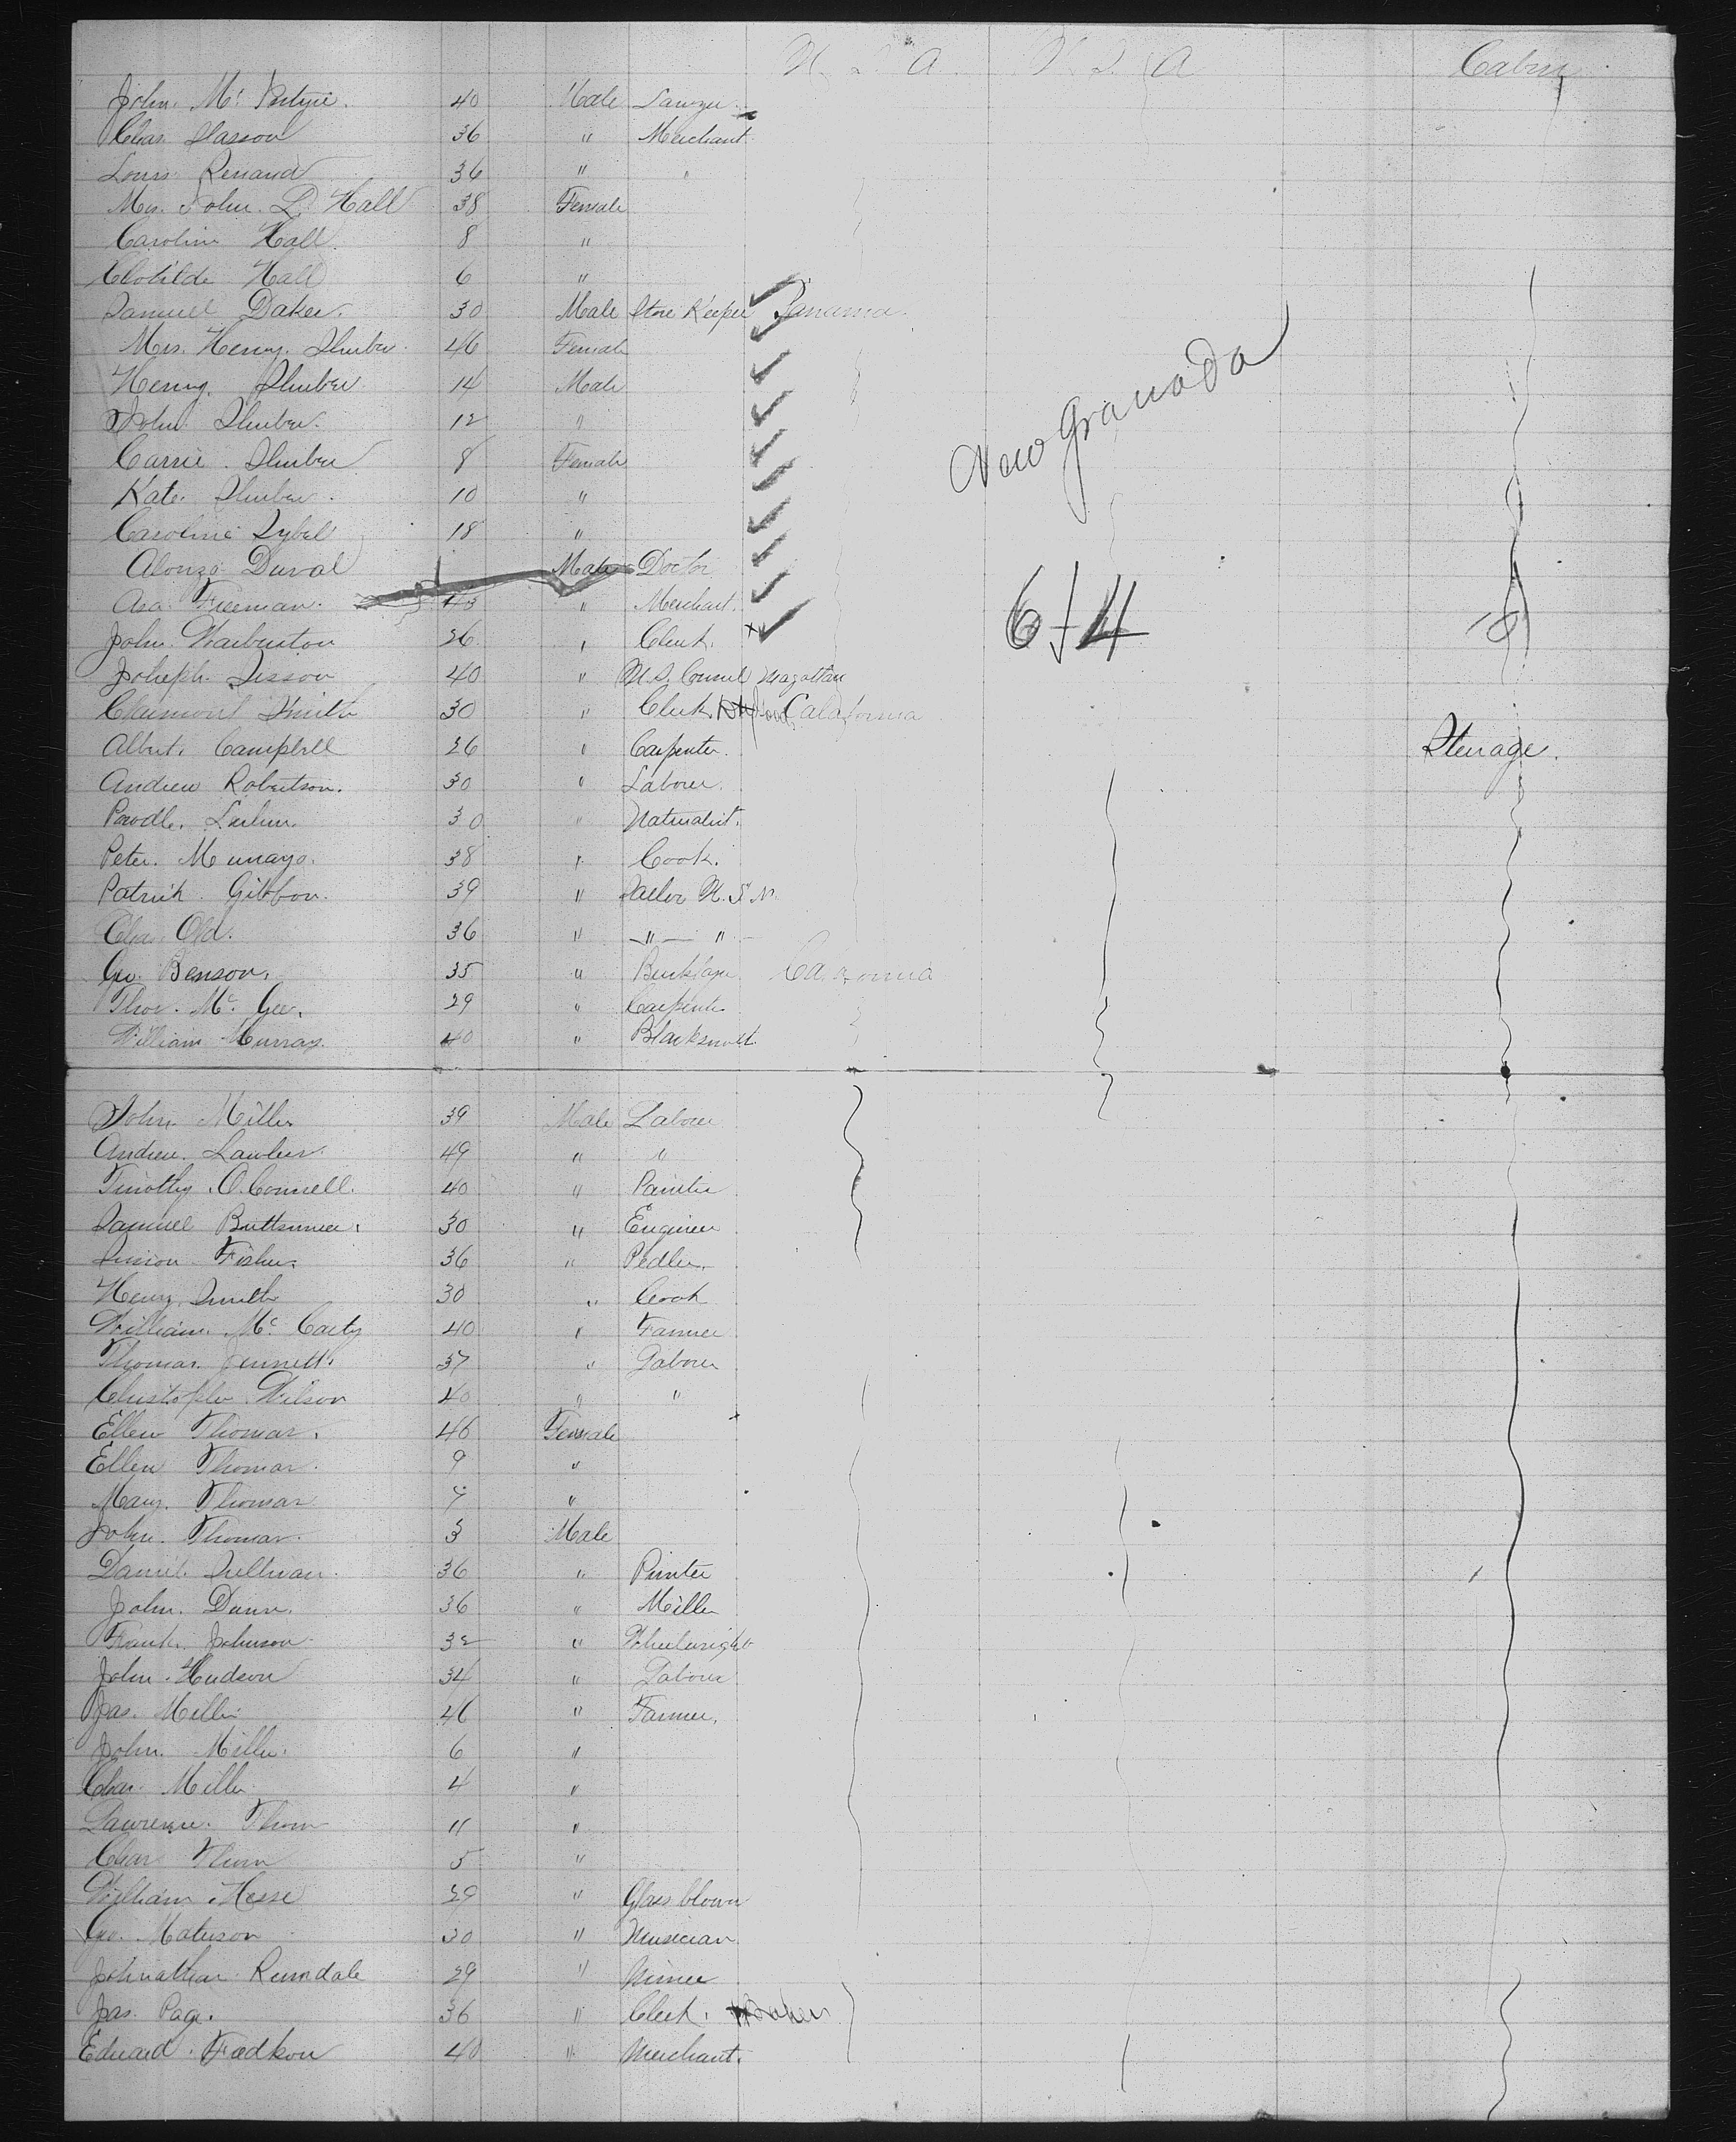 U. S. A. U. S. A Cabin
John. Mc Intyre. 40 Male Lawyer
Chas. Slasson 36 " Merchant
Louis Renaud 36 " "
Mrs. John. L. Hall 38 Female
Caroline Hall. 8 "
Clotilde Hall 6 "
Samuel Baker. 30 Male Store Keeper Panama.
Mrs. Henry. Shuber. 46 Female
Henry. Shuber 14 Male
John Shuber. 12 "
Carrie. Shuber 8 Female
New Granada
Kate. Shuber. 10 "
Caroline Sybel 18 "
Alonzo Duval Male Doctor
Asa Freeman. 43 " Merchant.
6 + 4
John. Warburton 26. " Clerk.
Joheph. Sisson 40 " U.S. Consul Mazattan
Clermont Smith 30 " Clerk California
Albert. Campbell 26 " Carpenter. Sterage.
Andrew Robertson. 30 " Laborer.
30 " Naturalist.
Peter. 38 " Cook.
Patrick. Gibbon. 39 " Sailor U. S. N.
Chas. Old. 36 " — " — "
Geo. Benson. 35 " California
Thos. Mc. Gee. 29 " Carpenter
William Murray. 40 " Blacksmith
John Miller 39 Male Laborer
Andrew. Lawler. 49 " "
Timothy. O. Connell. 40 " Painter
Samuel 30 " Engineer
Simon Fisher. 36 " Pedler.
Henry. Smith 30 " Cook
William. Mc. Carty 40 " Farmer
Thomas. Jennett. 37 " Laborer
Christopher Wilson 40 " "
Ellen Thomas. 46 Female
Ellen Thomas. 9 "
Mary. Thomas 7 "
John. Thomas. 3 Male
Daniel. Sullivan. 36 " Printer
John. Dunn. 36 " Miller
Frank. Johnson. 32 " Wheelwright
John. Hudson 34 " Laborer
Jas. Miller 46 " Farmer.
John. Miller. 6 "
Chas. Miller. 4 "
Lawrence. Thom 11 "
Chas Thom 5 "
William. Hesse 29 " Glass blower
Geo. Matison 30 " Musician.
Johnathan Rumdale 29 " Miner
Jas. Page. 36 " Clerk.
Edward. Fadkow 40 " Merchant.